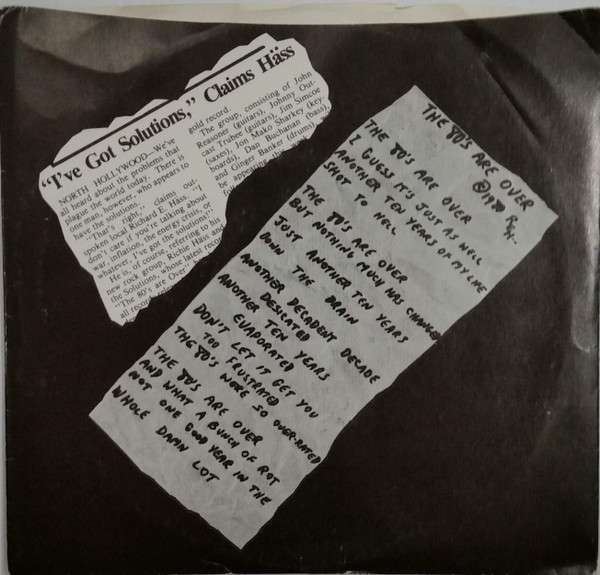 "I've Got Solutions," Claims Häss
NORTH HOLLYWOOD—We've
all heard about the problems that
plague the world today. There is
one man, however, who appears to
have the solutions.
"That's right," claims out-
spoken local Richard E. Häss. "I
don't care if you're talking about
war, inflation, the energy crisis, or
whatever, I've got the solutions."
He is, of course, referring to his
new rock group, Richie Häss and
the Solutions, whose latest record
"The 80's are Over"
all record
gold record.
The group, consisting of John
Reasoner (guitars), Johnny Out-
cast Trubee (guitars), Jim Simcoe
(saxes), Jon Mako Sharkey (key
boards), Dan Buchanan (bass),
and Ginger Ranker (drums)
be appearing
THE 80'S ARE OVER
©1980
THE 80'S ARE OVER
I GUESS IT'S JUST AS WELL
ANOTHER TEN YEARS OF MY LIFE
SHOT TO HELL
THE 80'S ARE OVER
BUT NOTHING MUCH HAS CHANGED
JUST ANOTHER TEN YEARS
DOWN THE DRAIN
ANOTHER DECADENT DECADE
DESICATED
ANOTHER TEN YEARS
EVAPORATED
DON'T LET IT GET YOU
TOO FRUSTRATED
THE 80'S WERE SO OVER-RATED
THE 80'S ARE OVER
AND WHAT A BUNCH OF ROT
NOT ONE GOOD YEAR IN THE
WHOLE DAMN LOT